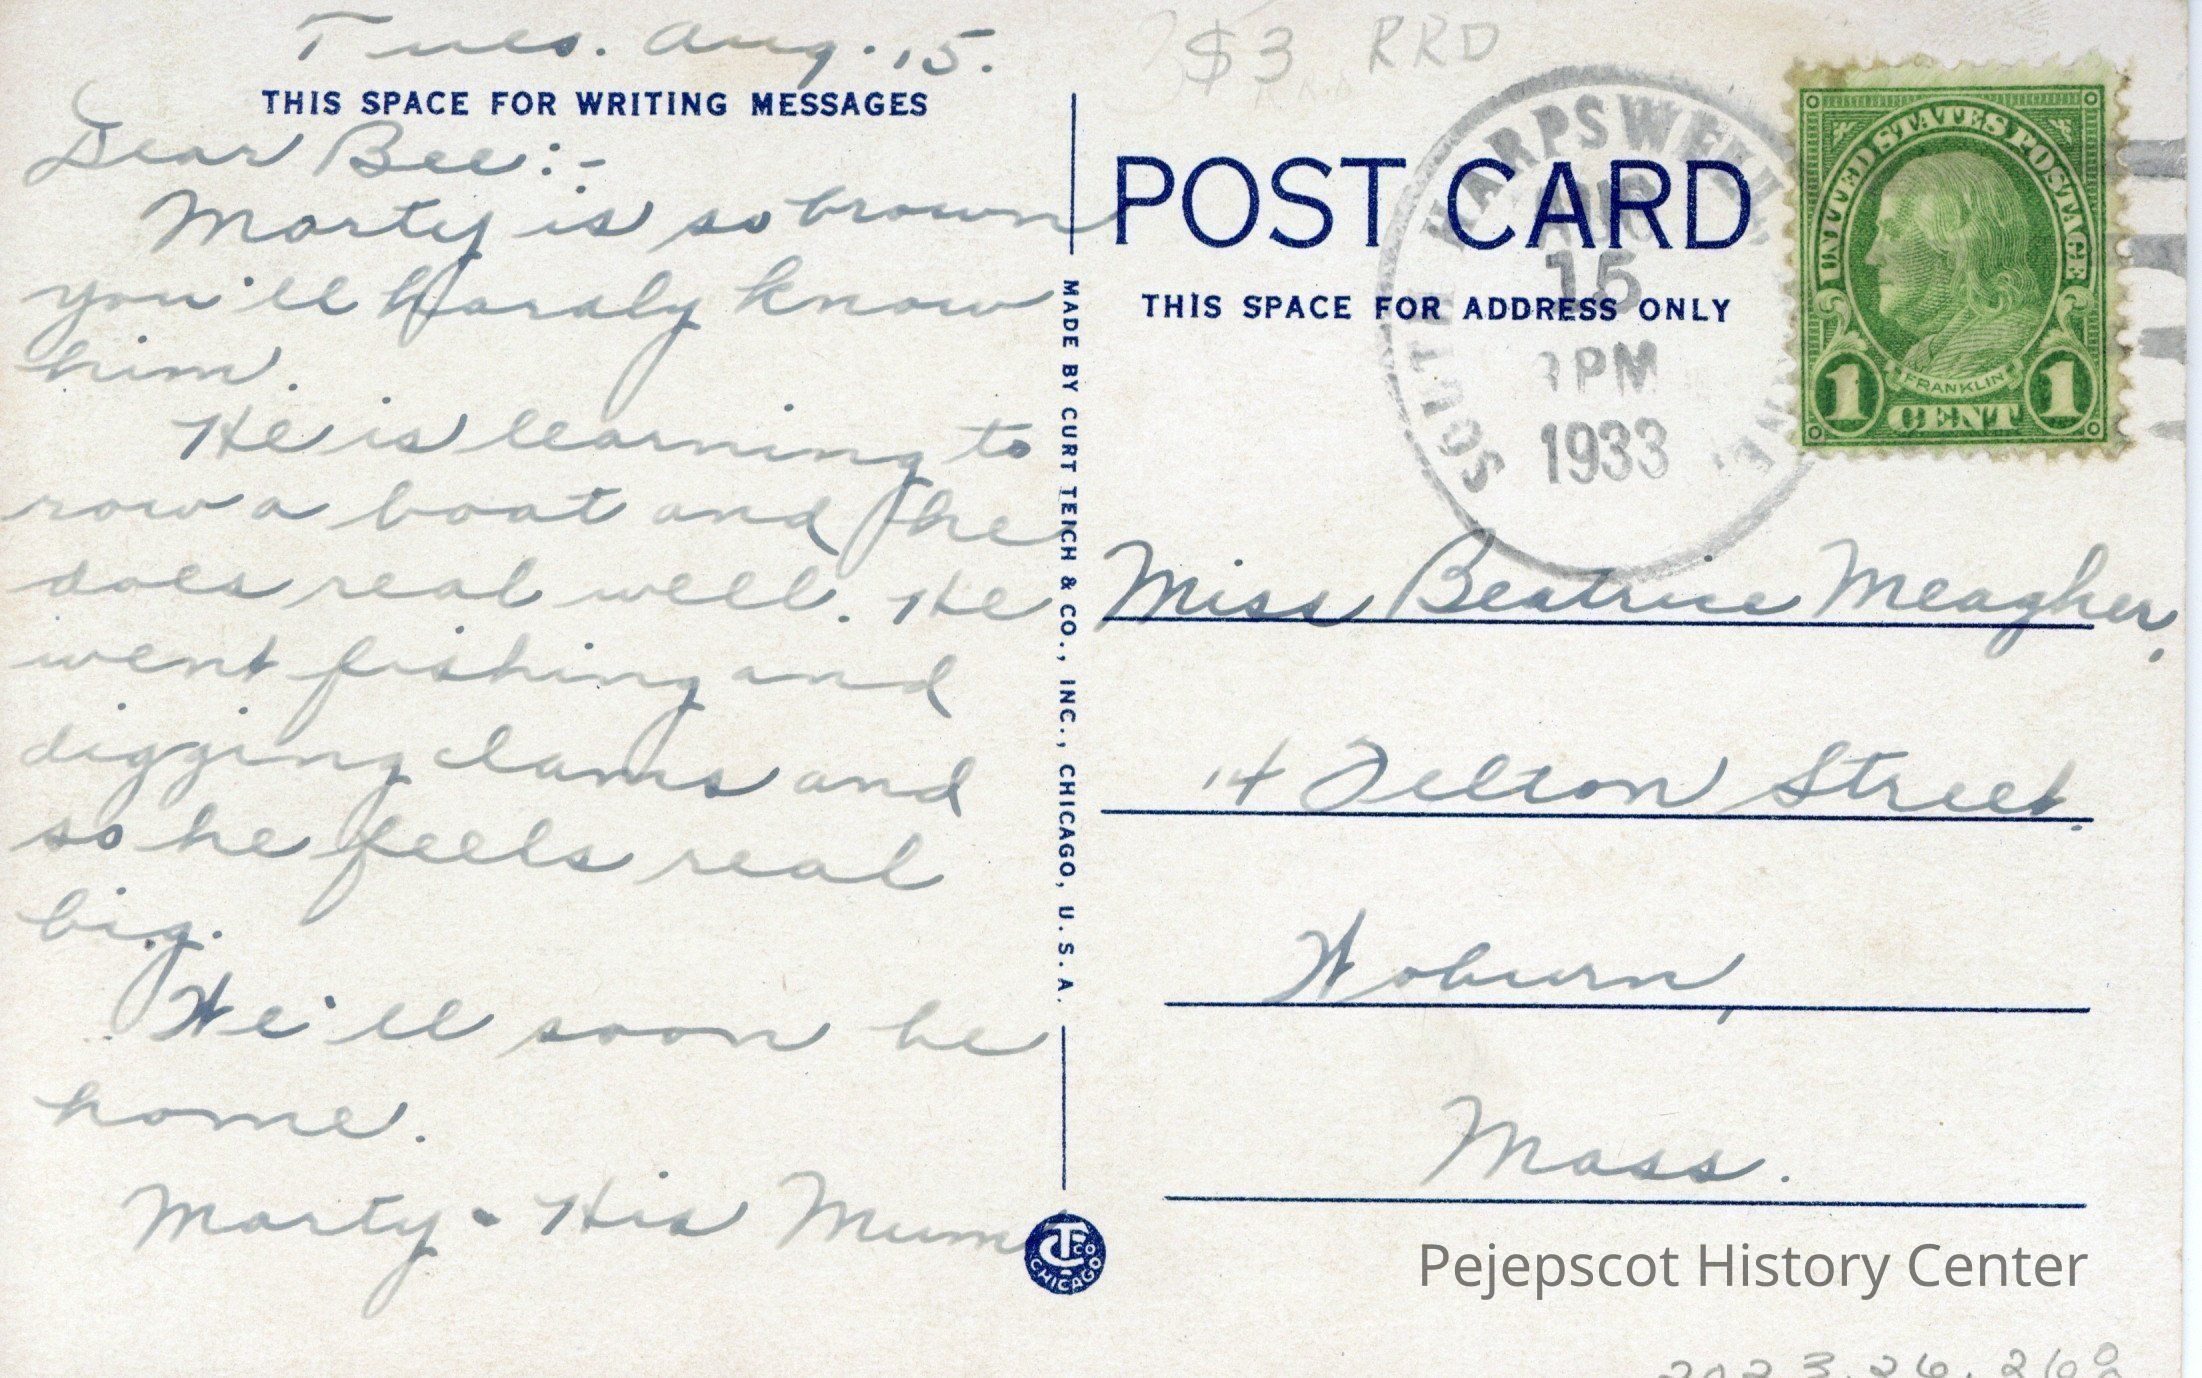 Tues. Aug. 15.
THIS SPACE FOR WRITING MESSAGES
Dear Bee:-
Marty is so brown
you'll hardly know
him.
He is learning to
row a boat and he
does real well. He
went fishing and
digging clams and
so he feels real
big.
We'll soon be
home.
Marty - His Mum
MADE BY CURT TEICH & CO., INC., CHICAGO, U.S.A.
CT CO
CHICAGO
$3 RRD
POST CARD
THIS SPACE FOR ADDRESS ONLY
SOUTH HARPSWELL,
AUG
15
PM
1933
UNITED STATES POSTAGE
FRANKLIN
1 CENT 1
Miss Beatrice Meagher,
14 Felton Street.
Woburn,
Mass.
Pejepscot History Center
2023.26.268